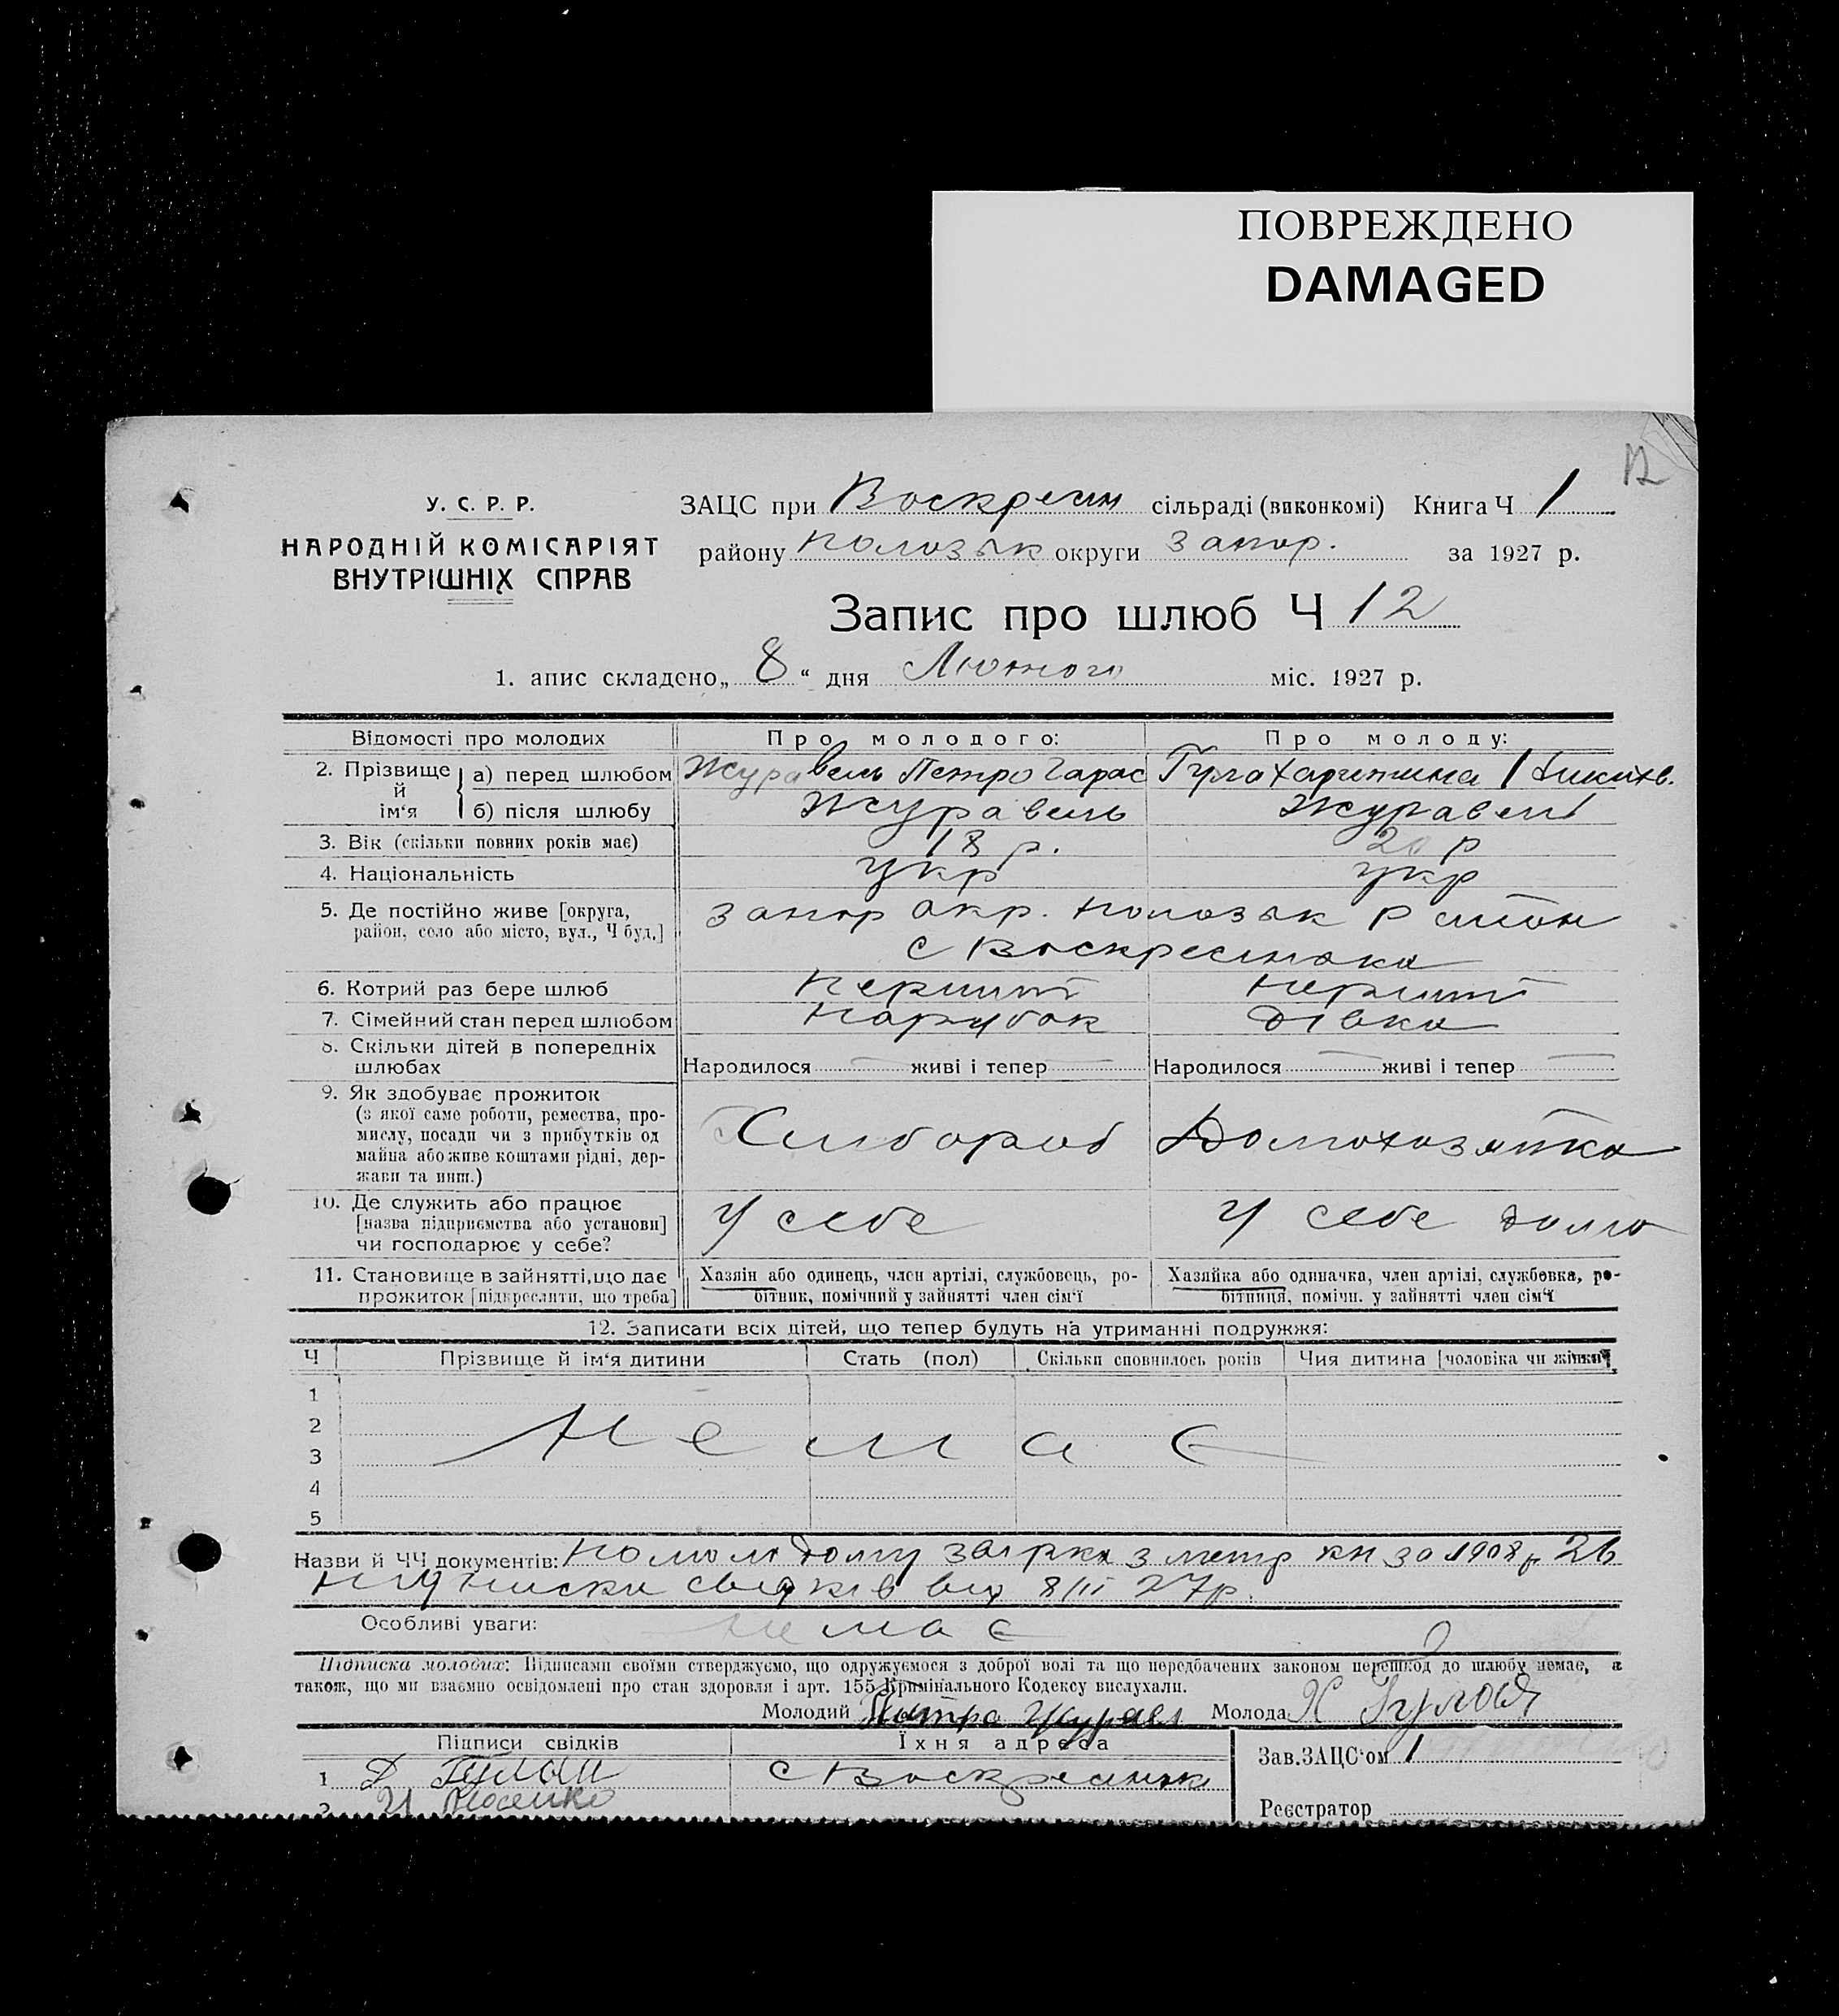 ПОВРЕЖДЕНО
DAMAGED
12
У. С. Р. Р.
НАРОДНІЙ КОМІСАРІЯТ
ВНУТРІШНІХ СПРАВ
ЗАЦС при Воскресен сільраді (виконкомі) Книга Ч 1
району округи Запор. за 1927 р.
Запис про шлюб Ч 12
1. апис складено „ 8 “ дня Лютого міс. 1927 р.
Відомості про молодих Про молодого: Про молоду:
2. Прізвище й ім‘я а) перед шлюбом Журавель Петро Тарас Гула Харитина Никитв.
б) після шлюбу Журавель Журавель
3. Вік (скільки повних років має) 18 р. 20 р
4. Національність укр укр
5. Де постійно живе [округа, Запор окр. Пологзьк район
район, село або місто, вул., Ч буд.] с Воскресенка
6. Котрий раз бере шлюб Перший Перший
7. Сімейний стан перед шлюбом Парубок Дівка
8. Скільки дітей в попередніх
шлюбах Народилося живі і тепер Народилося живі і тепер
9. Як здобуває прожиток
(з якої саме роботи, ремества, про-
мислу, посади чи з прибутків од
майна або живе коштами рідні, дер-
жави та инш.)
Хлібороб Домохазяйка
10. Де служить або працює
[назва підприємства або установи]
чи господарює у себе?
У себе У себе дома
11. Становище в зайнятті, що дає
прожиток [підкреслити, що треба]
Хазяїн або одинець, член артілі, службовець, ро-
бітник, помічний у зайнятті член сім‘ї
Хазяйка або одиначка, член артілі, службовка, ро-
бітниця, помічн. у зайнятті член сім‘ї
12. Записати всіх дітей, що тепер будуть на утриманні подружжя:
Ч Прізвище й ім‘я дитини Стать (пол) Скільки сповнилось років Чия дитина [чоловіка чи жінки]
1
2
3
4
5
Немає
Назви й ЧЧ документів: з метр кн за 1908 р 26
Підписки свідків від 8/II 27р.
Особливі уваги: Немає
Підписка молодих: Підписами своїми стверджуємо, що одружуємося з доброї волі та що передбачених законом перешкод до шлюбу немає, а
також, що ми взаємно освідомлені про стан здоровля і арт. 155 Кримінального Кодексу вислухали.
Молодий Петро Журавл Молода Х Гулова
Підписи свідків Їхня адреса Зав.ЗАЦС‘ом
1 Д Гулай с Воскресенк
2
Реєстратор